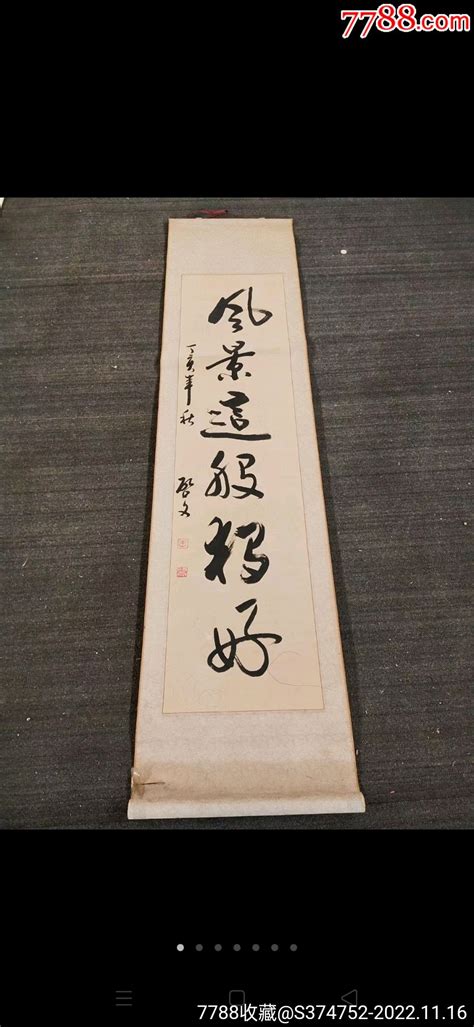 7788.com
风景這般独好
丁亥年秋
啟文
7788收藏@S374752-2022.11.16